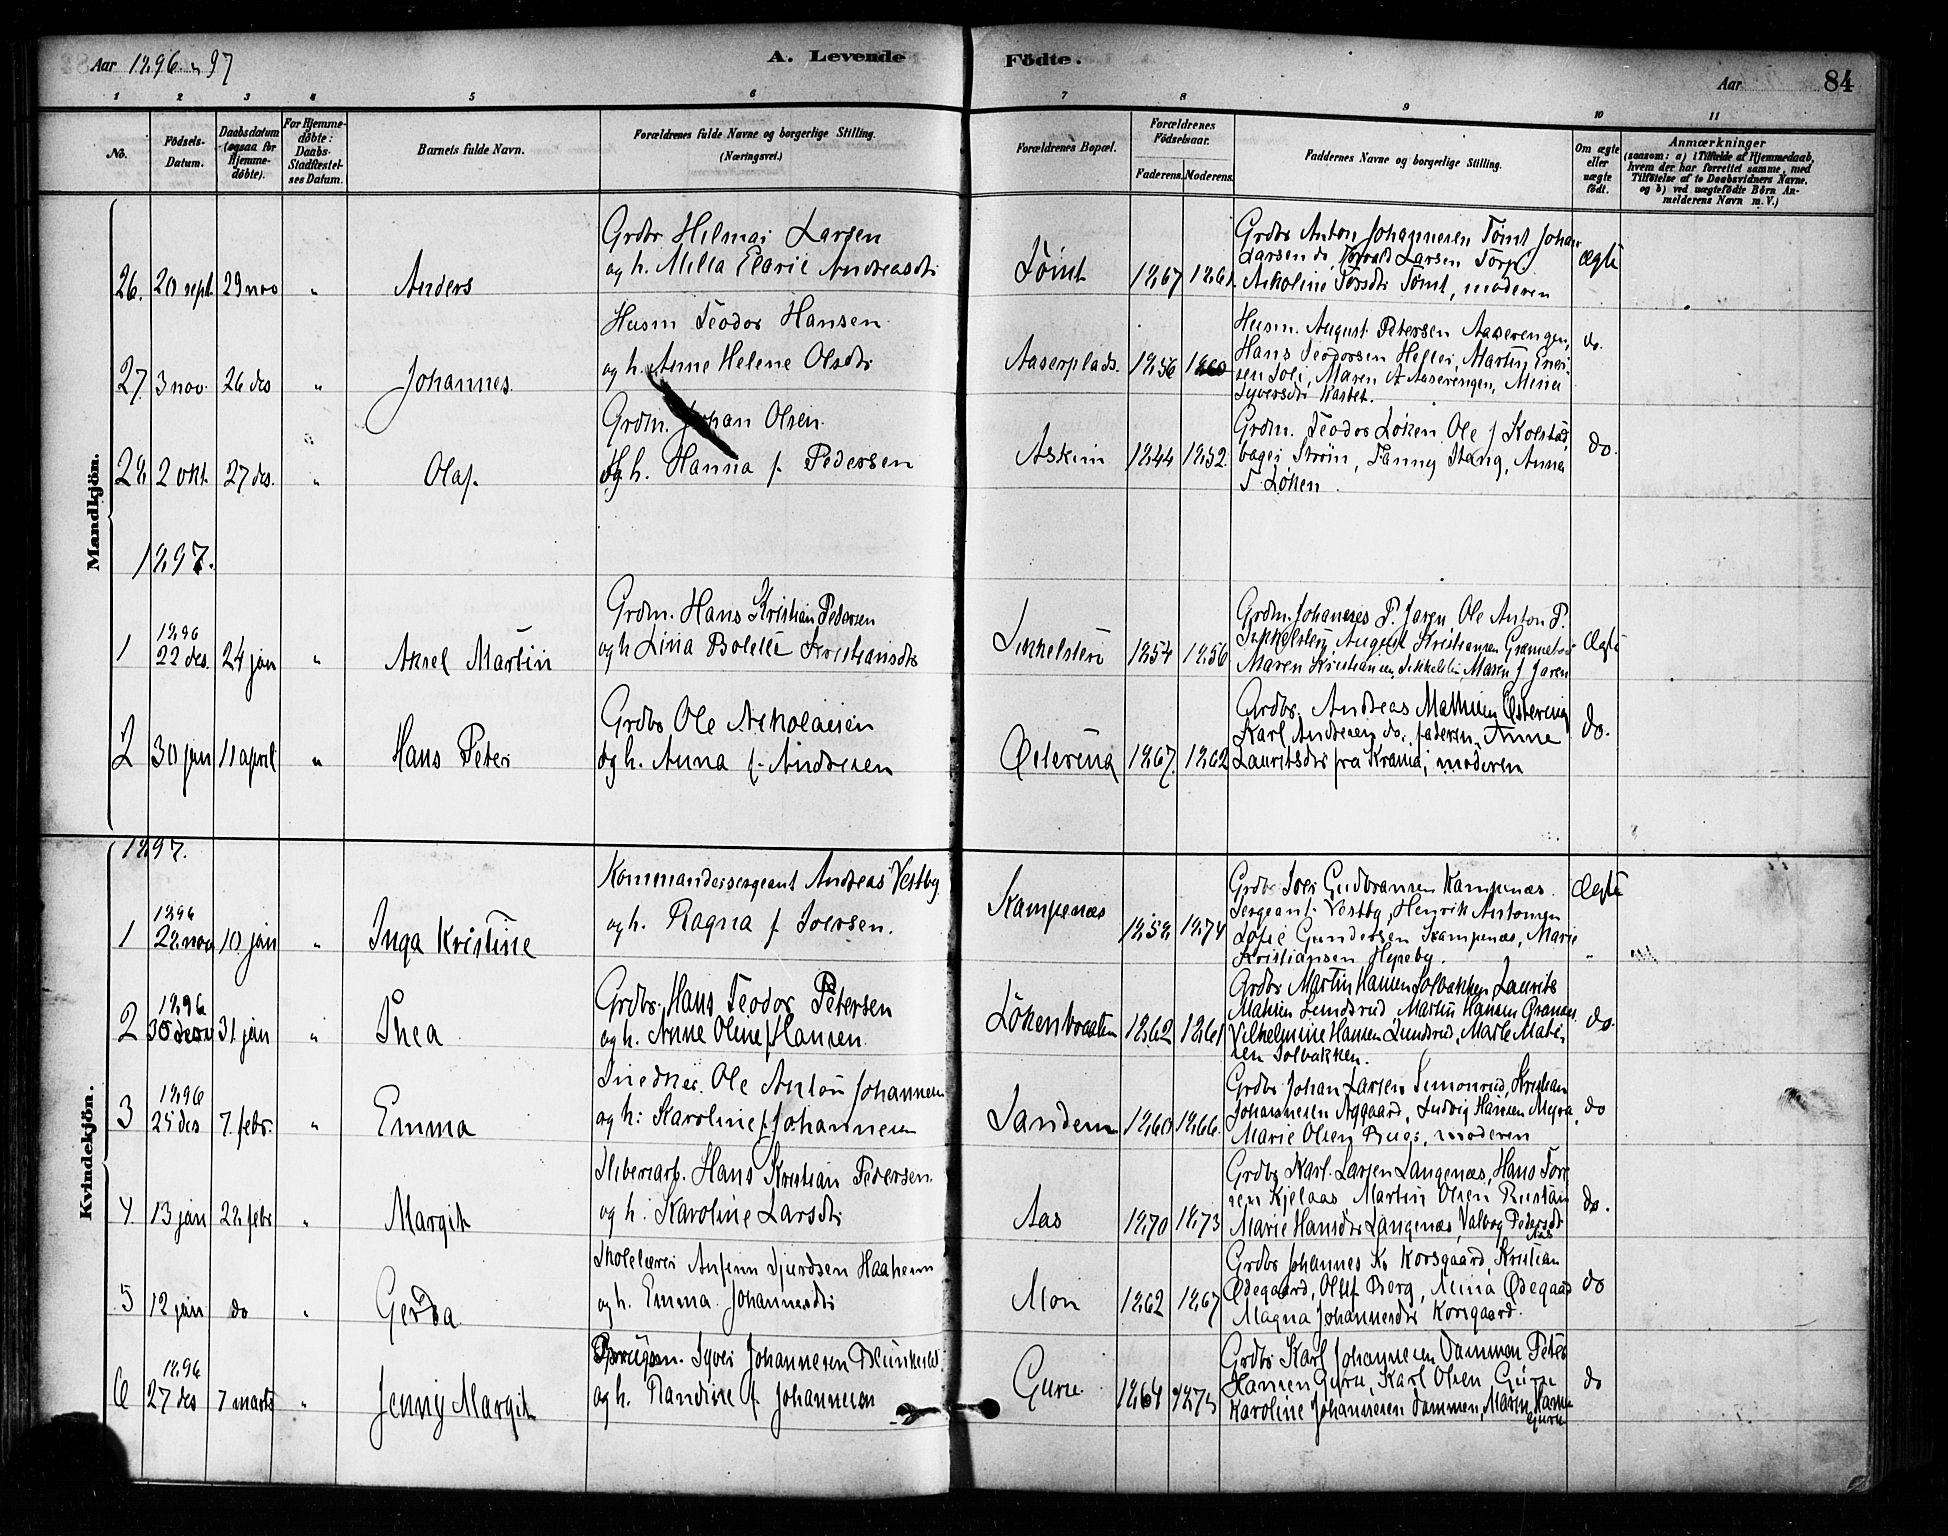 Aar 1896 & 97
A. Levende
Födte.
Aar
84
1 2 3 4 5 6 7 8 9 10 11
No.
Födsels-Datum.
Daabsdatum (ogsaa for Hjemme-döbte).
For Hjemme-döbte: Daabs-Stadfæstel-ses Datum.
Barnets fulde Navn.
Forældrenes fulde Navne og borgerlige Stilling.
(Næringsvei.)
Forældrenes Bopæl.
Forældrenes Födselsaar.
Faderens. Moderens.
Faddernes Navne og borgerlige Stilling.
Om ægte eller uægte födt.
Anmærkninger
(saasom: a) i Tilfælde af Hjemmedaab,
hvem der har forrettet samme, med
Tilföielse af to Daabsvidners Navne,
og b) ved uægtefödte Börn An-
melderens Navn m. V.)
Mandkjön.
26. 20 sept. 29 nov " Anders
Grdbr Hilmar Larsen
og h. Milla Elavie Andreasdtr
Tömt 1867 1861.
Grdbr Anton Johannesen Tömt Johan
Larsen do, Torvald Larsen Torp.
Nikoline Torsdtr Tömt, moderen
ægte
27. 3 nov. 26 des " Johannes.
Husm Teodor Hansen
og h. Anne Helene Olsdtr
Aaserplads. 1856 1860
Husm. August Petersen Aaserengen,
Hans Teodorsen Heller, Martin
Maren A Aaserengen, Mina
Syversdtr Kastet.
do.
28. 2 okt. 27 des. " Olaf.
Grdm. Johan Olsen
og h. Hanna f. Pedersen
Askim 1844 1852.
Grdm. Teodor Løken Ole J Kolstad,
bager Ström, Fanny Stang, Anna
T. Løken.
do.
1897.
1 1896 22 des. 24 jan " Aksel Martin
Grdm. Hans Kristian Pedersen
og h Lina Bolette Kristiansdtr
Sekkelsten 1854 1856
Grdm. Johannes P. Jaren, Ole Anton P.
Sekkelsten, August Kristiansen
Maren Kristiansen, Sekkelsten, Maren J Jaren
Ægte
2 30 jan 11 april " Hans Peter
Grdbr Ole Nikolaisen
og h. Anna f. Andresen
Østereng 1867. 1862
Grdbr. Andreas Mathisen Østereng
Karl Andresen do, faderen, Anne
Lauritsdtr fra Krania, moderen
do.
Kvindekjön.
1897.
1 1896 28 nov 10 jan " Inga Kristine
Kommandersergeant Andreas Vestby
og h. Ragna f. Iversen.
Kampenæs 1858 1874
Grdbr Iver Gudbransen Kampenæs.
Sergeant Vestby, Henrik Antonsen
Lovise Gundersen Kampenæs, Marie
Kristiansen Hepeby.
Ægte
2 1896 30 des 31 jan " Thea
Grdbr. Hans Teodor Petersen
og h. Anne Oline f Hansen
Lökenbraaten 1862 1861
Grdbr Martin Hansen Solbakken Laurits
Mathisen Lundsrud Martin Hansen
Vilhelmine Hansen Lundsrud, Marte Mathi-
sen Solbakken.
do.
3 1896 25 des 7. febr. " Emma
Snedker. Ole Anton Johannesen
og h: Karoline f. Johannesen
Sandem 1860 1866.
Grdbr Johan Larsen Simonrud, Kristian
Johannesen Aggaard, Ludvig Hansen Myra,
Marie Olsen Buer, moderen
do
4. 13 jan 28. febr " Margit
Sliberiarb. Hans Kristian Pedersen.
og h. Karoline Larsdtr
Aas 1870 1873
Grdbr Karl Larsen Langenæs, Hans Tor-
sen Kjelaas Martin Olsen Rustan
Marie Hansdtr Langenæs, Valbog Pedersdtr
Aas
do.
5 12 jan do " Gerda
Skolelærer Anfinn Sjurdsen Haaheim
og h. Emma Johannesdtr
Mon 1862 1867
Grdbr Johannes K. Korsgaard, Kristian
Ødegaard, Oluf Berg, Mina Ødegaard
Magna Johannesdtr Korsgaard.
do
6 1896 27 des 7 marts " Jenny Margit
Brugsm. Syver Johannesen
og h. Randine f Johannesen
Guru 1864 1875
Grdbr Karl Johannesen Dammen Peter
Hansen Guru, Karl Olsen Guru
Karoline Johannesen Dammen, Maren Hansen
Guru
do